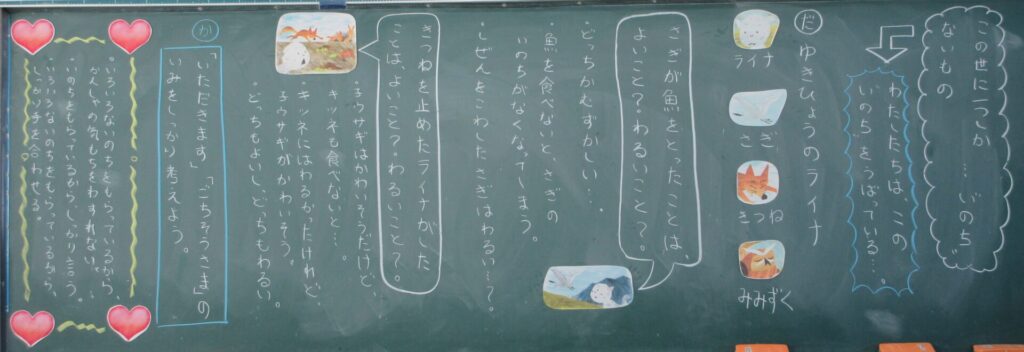 この世に一つしか……いのち
ないもの
わたしたちは、この
いのちをうばっている…。
だ ゆきひょうのライナ
ライナ
さぎ
きつね
みみずく
さぎが魚をとったことは、
よいこと?わるいこと?。
・どっちかむずかしい…。
・魚を食べないと、さぎの
いのちがなくなってしまう。
・しぜんをこわしたさぎはわるい…?
きつねを止めたライナがした
ことはよいこと?わるいこと?。
・子ウサギはかわいそうだけど、
キツネも食べないと…。
・キツネにはわるかったけれど、
子ウサギがかわいそう。
・どっちもよいし、どっちもわるい。
か
「いただきます」「ごちそうさま」の
いみをしっかり考えよう。
・いろいろないのちをもらっているから、
かんしゃの気もちをわすれない。
・いのちをもらっているから、しっかり言う。
・いろいろないのちをもらっているから、
しっかり手を合わせる。